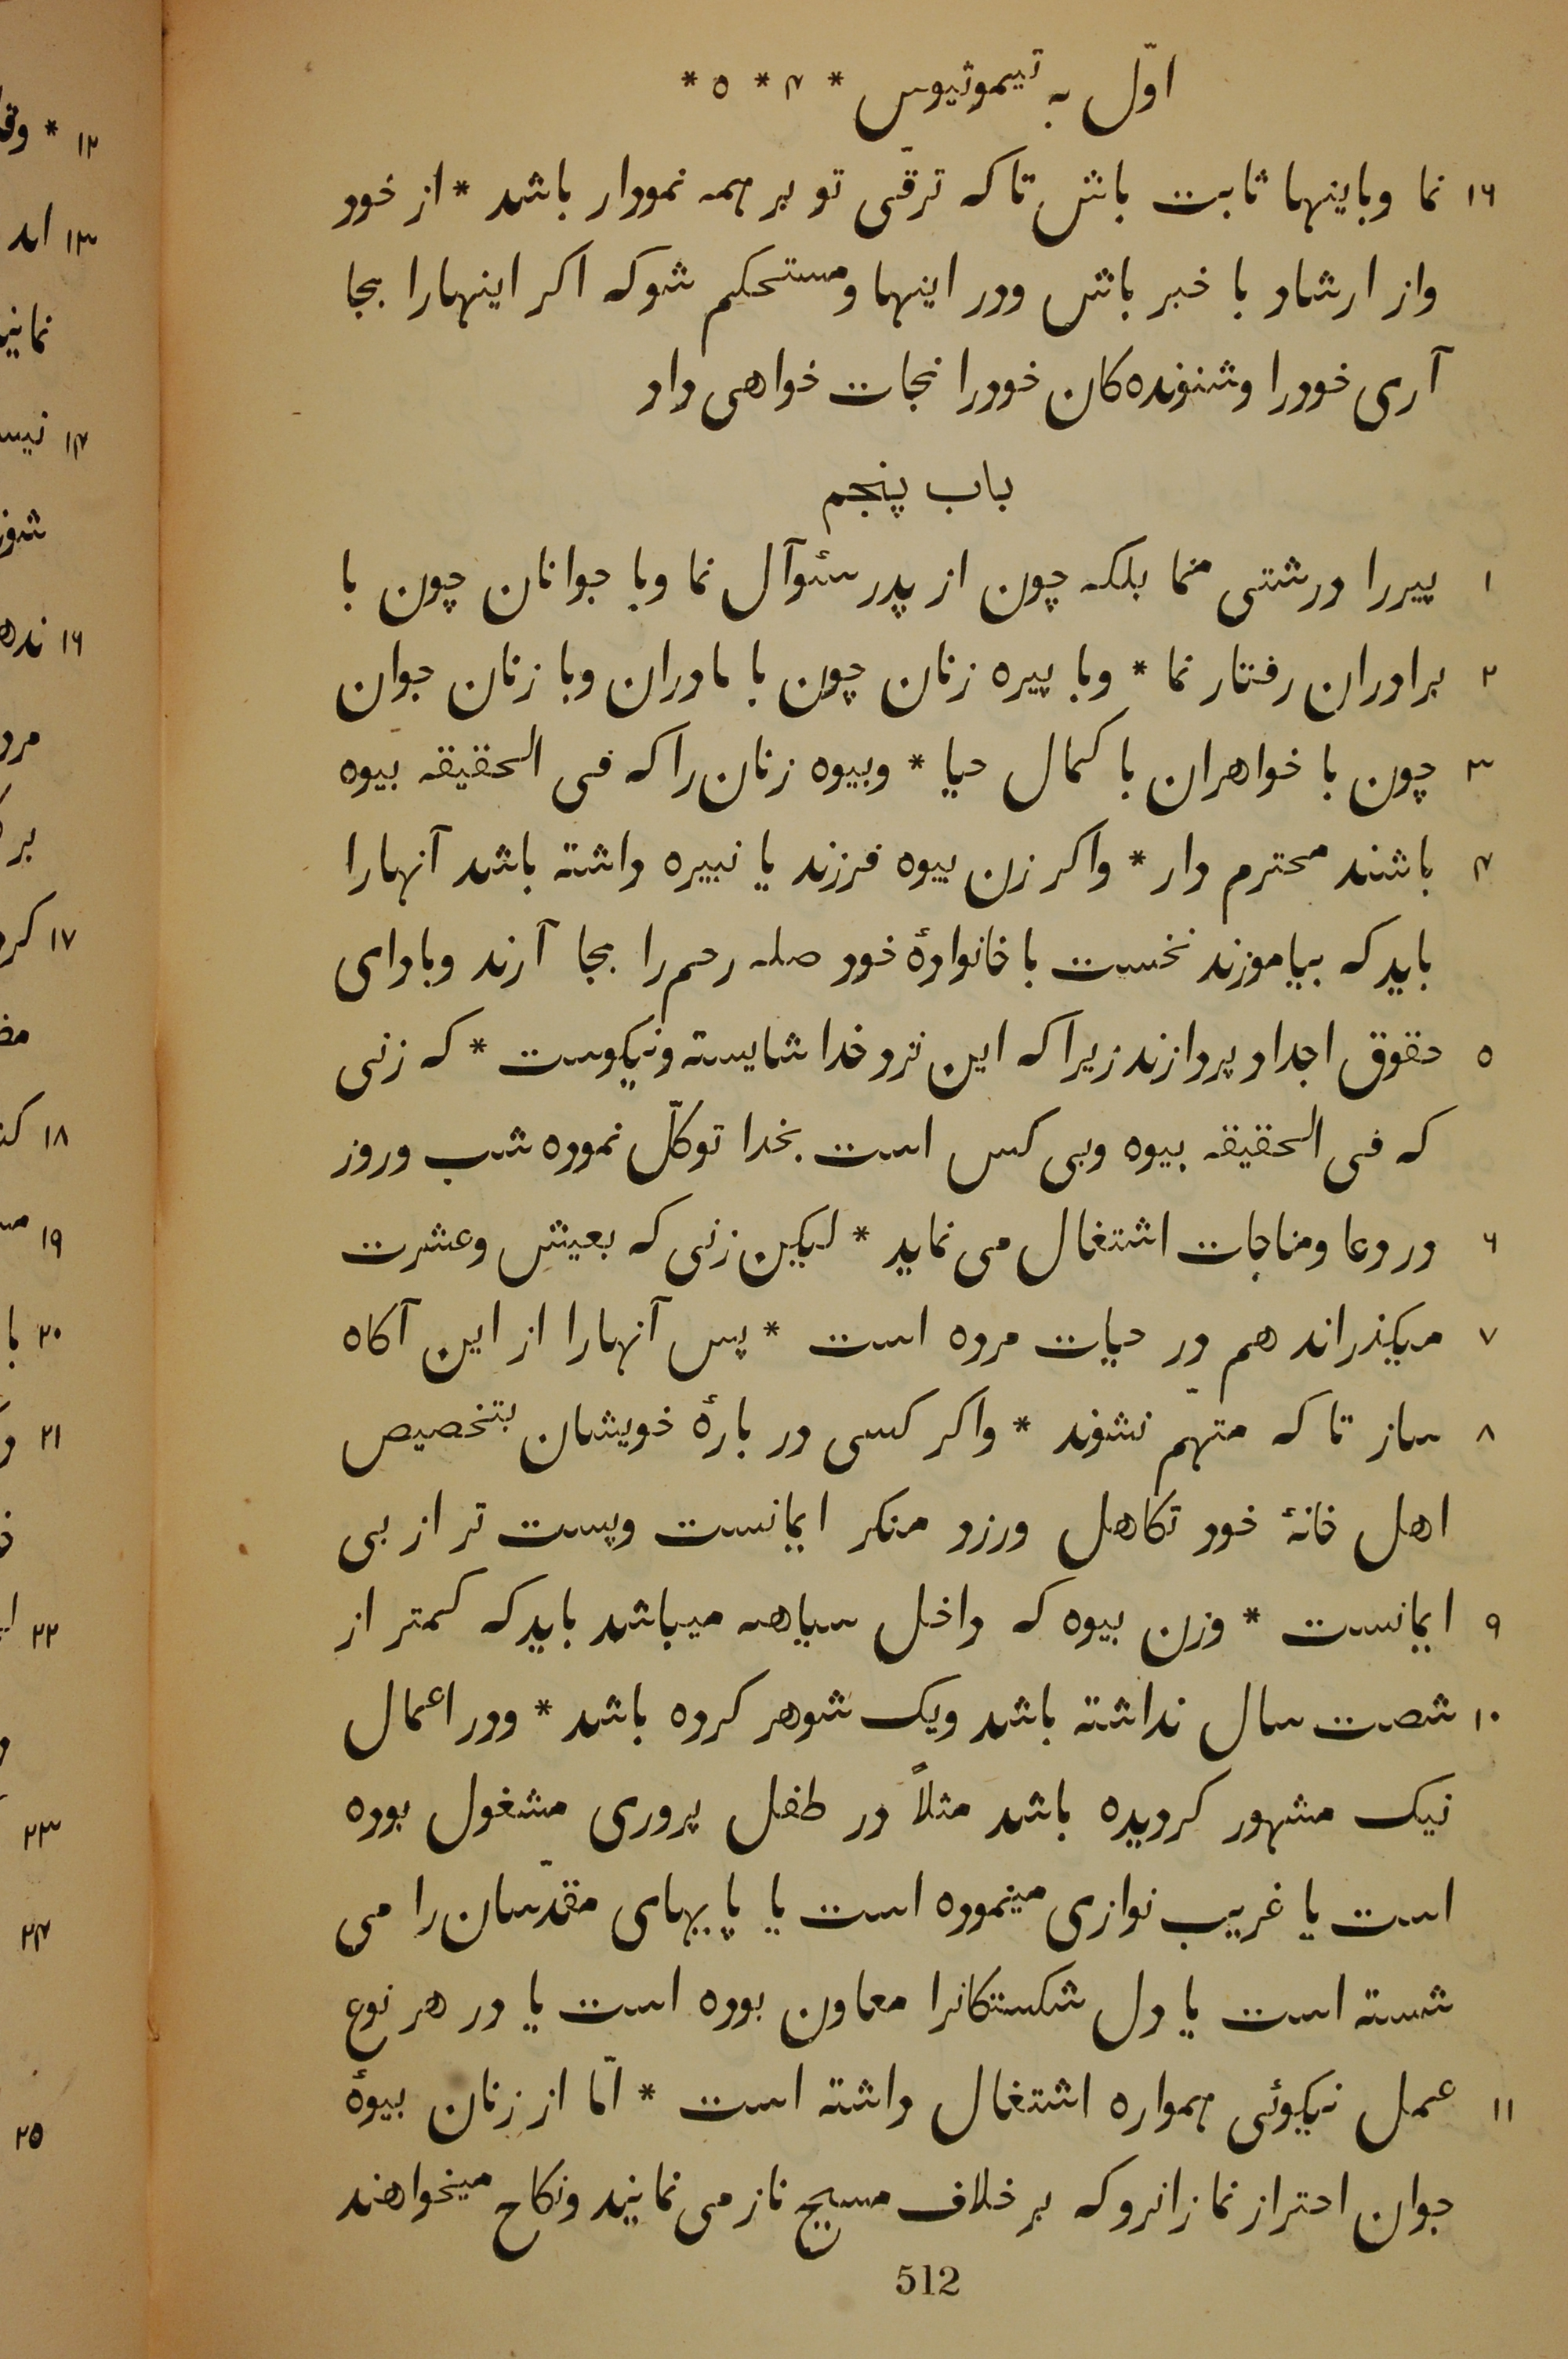 اوّل به تیموثیوس * ۴ * ۵ *
۱۶ نما وباینها ثابت باش تا که ترقّی تو بر همه نمودار باشد * از خود
واز ارشاد با خبر باش ودر اینها ومستحکم شو که اکر اینهارا بجا
آری خودرا وشنونده کان خودرا نجات خواهی داد
باب پنجم
۱ پیررا درشتی منما بلکه چون از پدر سئوآل نما وبا جوانان چون با
۲ برادران رفتار نما * وبا پیره زنان چون با مادران وبا زنان جوان
۳ چون با خواهران با کمال حیا * وبیوه زنان را که فی الحقیقه بیوه
۴ باشند محترم دار * واکر زن بیوه فرزند یا نبیره داشته باشد آنهارا
باید که بیاموزند نخست با خانوادهٔ خود صله رحم را بجا آرند وبادای
۵ حقوق اجداد پردازند زیرا که این نزد خدا شایسته ونیکوست * که زنی
که فی الحقیقه بیوه وبی کس است بخدا توکّل نموده شب وروز
۶ در دعا ومناجات اشتغال می نماید * لیکین زنی که بعیش وعشرت
۷ میکذراند هم در حیات مرده است * پس آنهارا از این آکاه
۸ ساز تا که متهمّ نشوند * واکر کسی در بارهٔ خویشان بتخصیص
اهل خانهٔ خود تکاهل ورزد منکر ایمانست وپست تر از بی
۹ ایمانست * وزن بیوه که داخل سیاهه میباشد باید که کمتر از
۱۰ شصت سال نداشته باشد ویک شوهر کرده باشد * ودر اعمال
نیک مشهور کردیده باشد مثلاً در طفل پروری مشغول بوده
است یا غریب نوازی مینموده است یا پایهای مقدّسان را می
شسته است یا دل شکستکانرا معاون بوده است یا در هر نوع
۱۱ عمل نیکوئی همواره اشتغال داشته است * امّا از زنان بیوهٔ
جوان احتراز نما زانرو که بر خلاف مسیح ناز می نمایند ونکاح میخواهند
512
۱۲ *
۱۳
۱۴
۱۶
۱۷
۱۸
۱۹
۲۰
۲۱
۲۲
۲۳
۲۴
۲۵